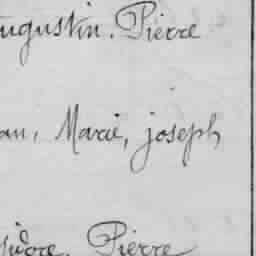 ugustin. Pierre
an, Marie, joseph
sidore, Pierre